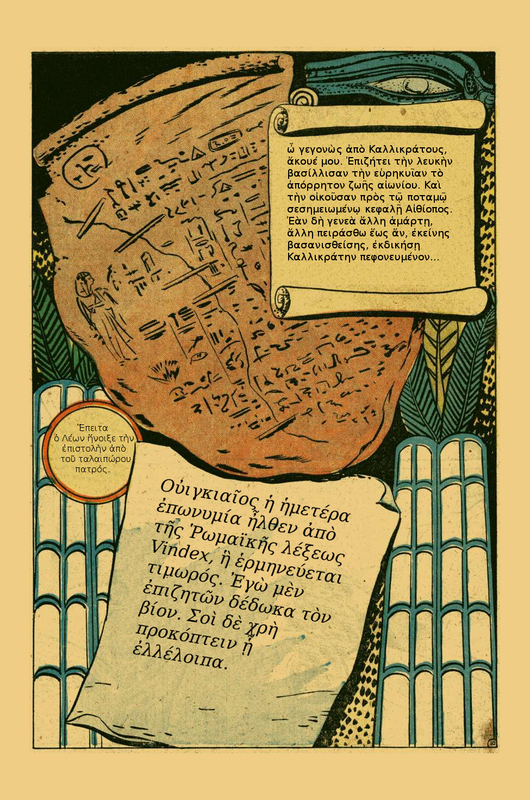 ὦ γεγονὼς ἀπὸ Καλλικράτους,
ἄκουέ μου. Ἐπιζήτει τὴν λευκὴν
βασίλλισαν τὴν εὑρηκυῖαν τὸ
ἀπόρρητον ζωῆς αἰωνίου. Καὶ
τὴν οἰκοῦσαν πρὸς τῷ ποταμῷ
σεσημειωμένῳ κεφαλῇ Αἰθίοπος.
Ἐὰν δὴ γενεὰ ἄλλη ἁμάρτῃ,
ἄλλη πειράσθω ἕως ἄν, ἐκείνης
βασανισθείσης, ἐκδικήσῃ
Καλλικράτην πεφονευμένον...
Ἔπειτα
ὁ Λέων ἤνοιξε τὴν
ἐπιστολὴν ἀπὸ
τοῦ ταλαιπώρου
πατρός.
Οὐιγκιαῖος ἡ ἡμετέρα
ἐπωνυμία ἦλθεν ἀπὸ
τῆς Ῥωμαϊκῆς λέξεως
Vindex, ἣ ἑρμηνεύεται
τιμωρός. Ἐγὼ μὲν
ἐπιζητῶν δέδωκα τὸν
βίον. Σοὶ δὲ χρὴ
προκόπτειν ᾗ
ἐλλέλοιπα.